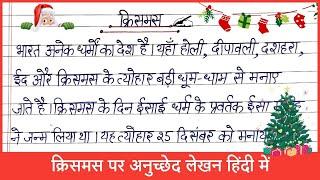 क्रिसमस
भारत अनेक धर्मों का देश है। यहाँ होली, दीपावली, दशहरा,
ईद और क्रिसमस के त्योहार बड़ी धूम-धाम से मनाए
जाते है। क्रिसमस के दिन ईसाई धर्म के प्रवर्तक ईसा
ने जन्म लिया था। यह त्योहार 25 दिसंबर को
क्रिसमस पर अनुच्छेद लेखन हिंदी में